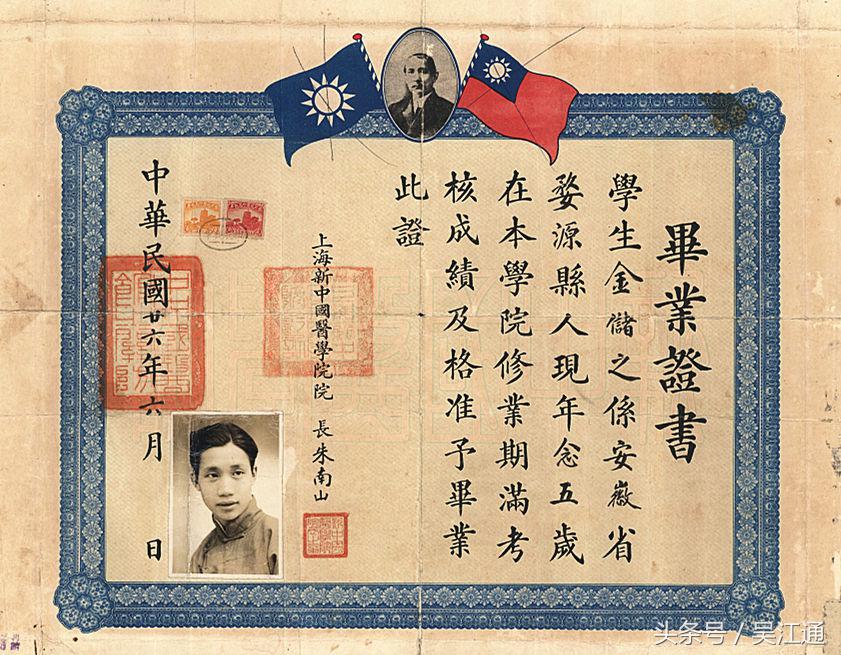 畢業證書
學生金儲之係安徽省
婺源縣人現年念五歲
在本學院修業期滿考
核成績及格准予畢業
此證
上海新中國醫學院院長朱南山
中華民國廿六年六月 日
头条号 / 吴江通